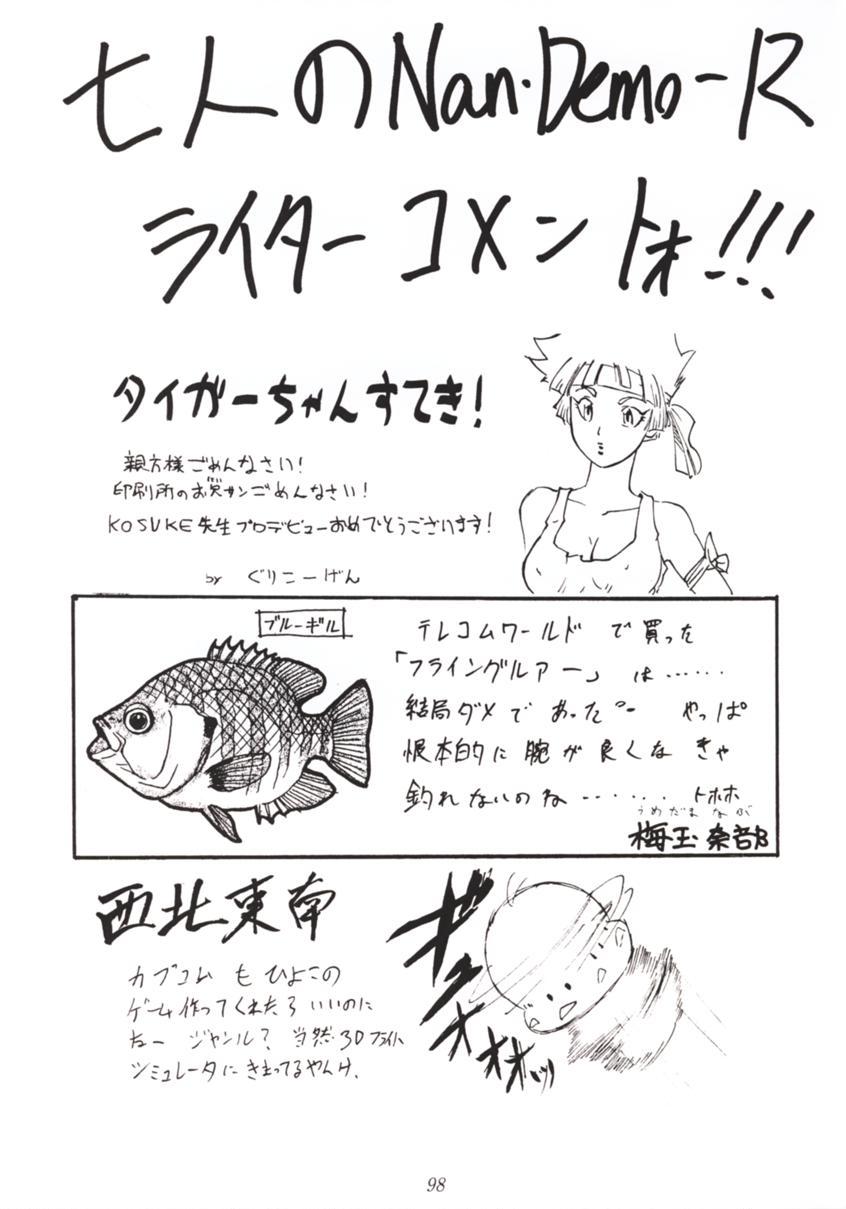 七人のNan・Demo-R
ライターコメントォ!!!
タイガーちゃんすてき!
親方様ごめんなさい!
印刷所のお兄サンごめんなさい!
KOSUKE先生プロデビューおめでとうございます!
by ぐりこーげん
ブルーギル
テレコムワールドで買った
「フライングルアー」は……
結局ダメであった。 やっぱ
根本的に腕が良くなきゃ
釣れないのね……… トホホ
うめだまなぶ
梅玉奈部
西北東南
カプコムもひよこの
ゲーム作ってくれたらいいのに
なー ジャンル? 当然・3Dフライト
シミュレータにきまってるやんけ、
ギュオオオオッッ
98